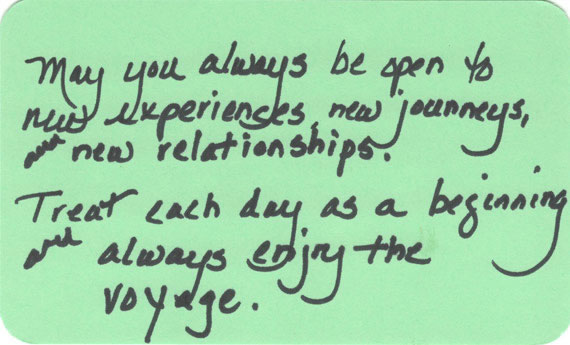 May you always be open to
new experiences, new journeys,
and new relationships.
Treat each day as a beginning
and always enjoy the
voyage.